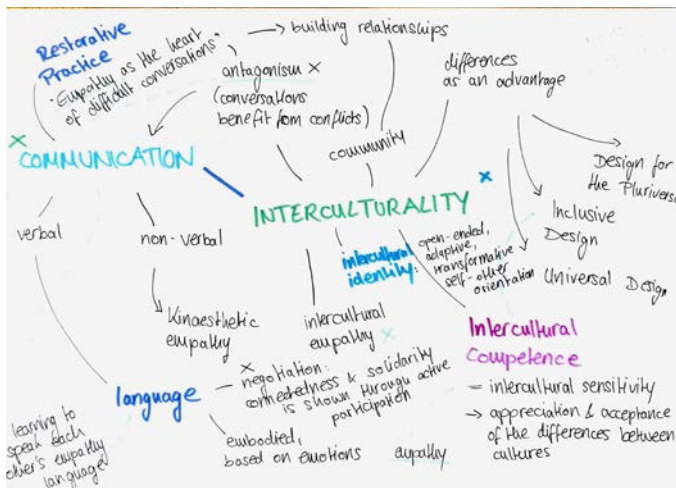 Restorative
Practice
"Empathy as the heart
of difficult conversations"
building relationships
antagonism ×
(conversations
benefit from conflicts)
differences
as an advantage
community
× COMMUNICATION
INTERCULTURALITY ×
Design for
the Pluriverse
Inclusive
Design
Universal Design
verbal
non-verbal
intercultural
identity:
open-ended,
adaptive,
transformative
self-other
orientation
Kinaesthetic
empathy
intercultural
empathy ×
Intercultural
Competence
= intercultural sensitivity
→ appreciation & acceptance
of the differences between
cultures
language
× negotiation:
connectedness & solidarity
is shown through active
participation
embodied,
based on emotions empathy
learning to
speak each
other's empathy
language